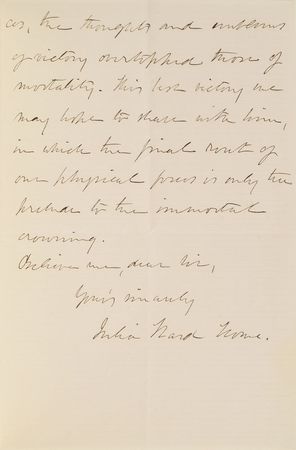 ces, the thoughts and emblems
of victory overtopped those of
mortality. This last victory we
may hope to share with him,
in which the final rout of
our physical forces is only the
prelude to the immortal
crowning.
Believe me, dear Sir,
Yours sincerely
Julia Ward Howe.